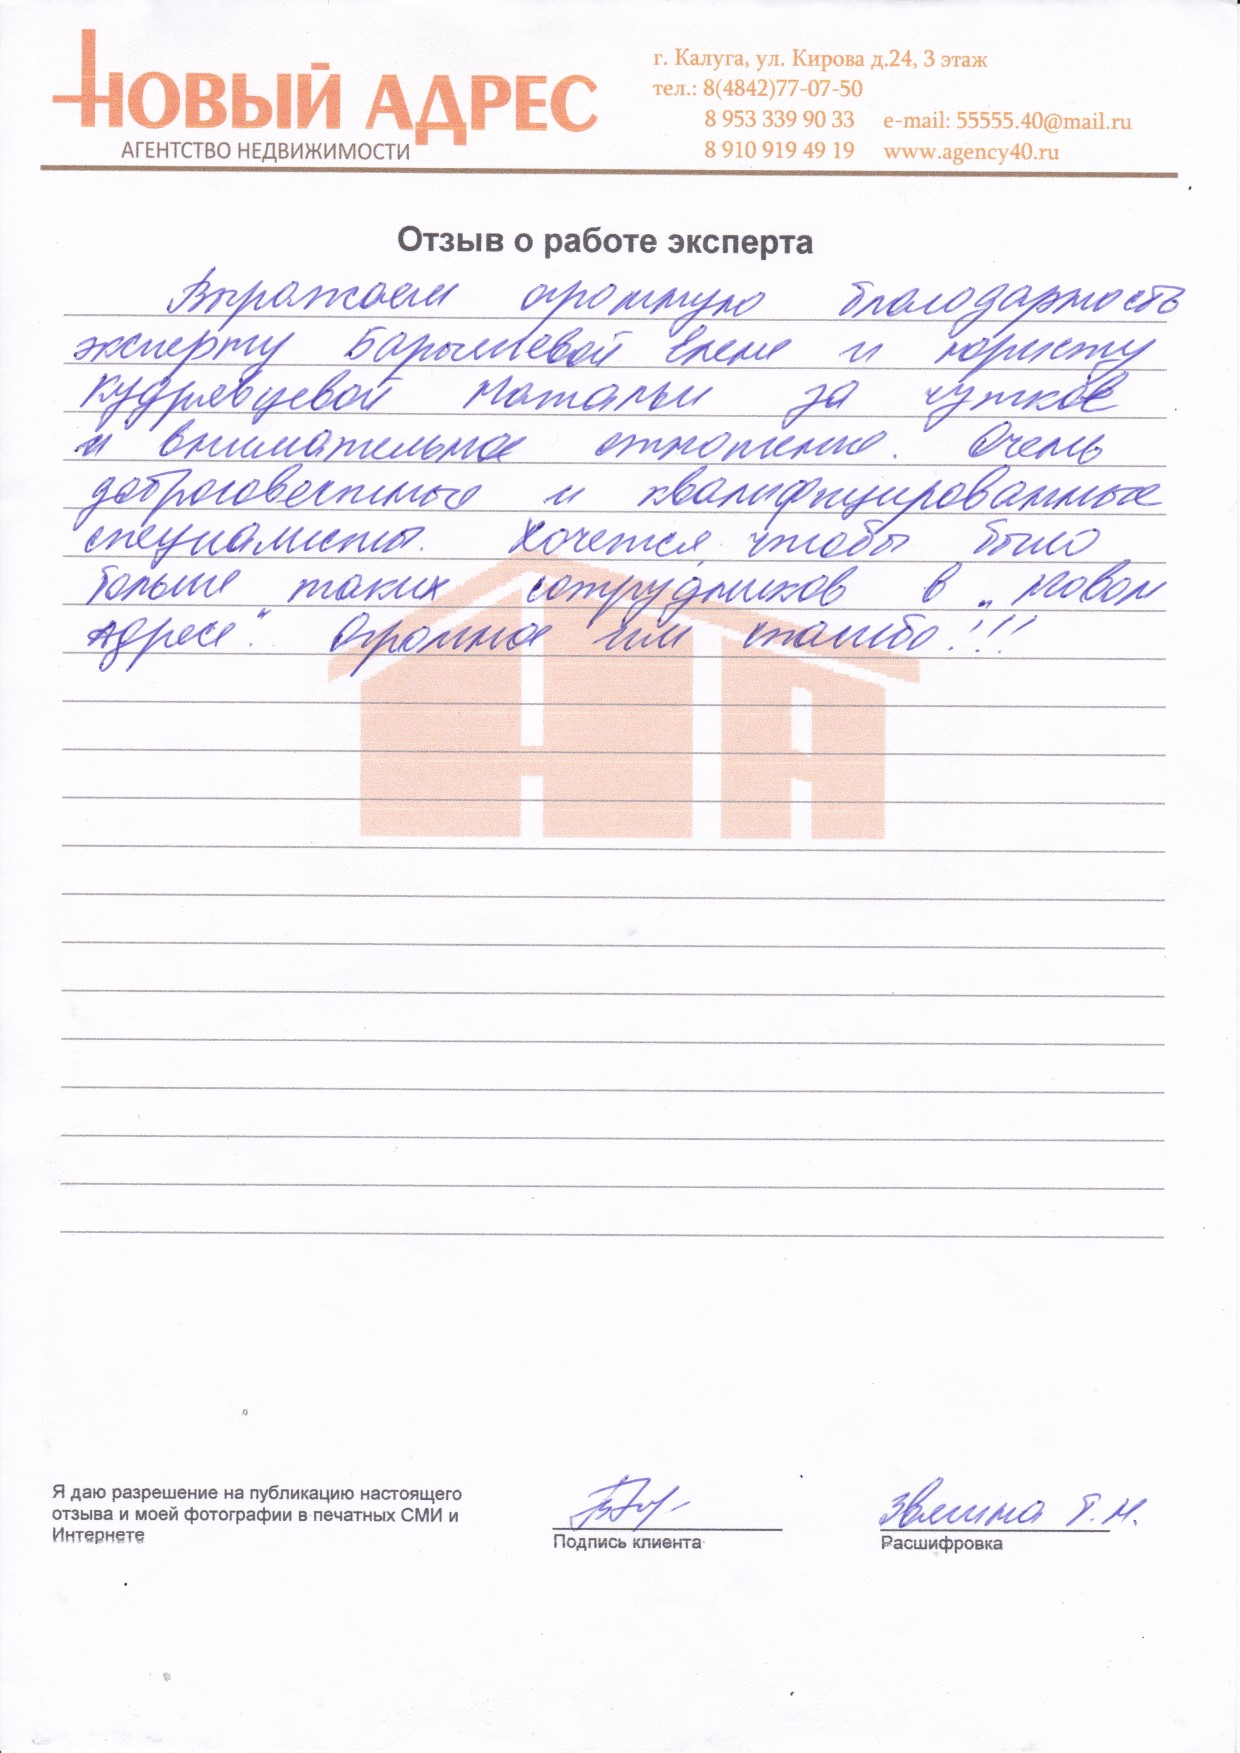 НОВЫЙ АДРЕС
АГЕНТСТВО НЕДВИЖИМОСТИ
г. Калуга, ул. Кирова д.24, 3 этаж
тел.: 8(4842)77-07-50
8 953 339 90 33 e-mail: 55555.40@mail.ru
8 910 919 49 19 www.agency40.ru
Отзыв о работе эксперта
Выражаем огромную благодарность
эксперту Барышевой Елене и юристу
Кудрявцевой Наталье за чуткое
и внимательное отношение. Очень
добросовестные и квалифицированные
специалисты. Хочется чтобы было
больше таких сотрудников в „Новом
Адресе". Огромное им спасибо!!!
НА
Я даю разрешение на публикацию настоящего
отзыва и моей фотографии в печатных СМИ и
Интернете
Подпись клиента
Звягина Т. Н.
Расшифровка